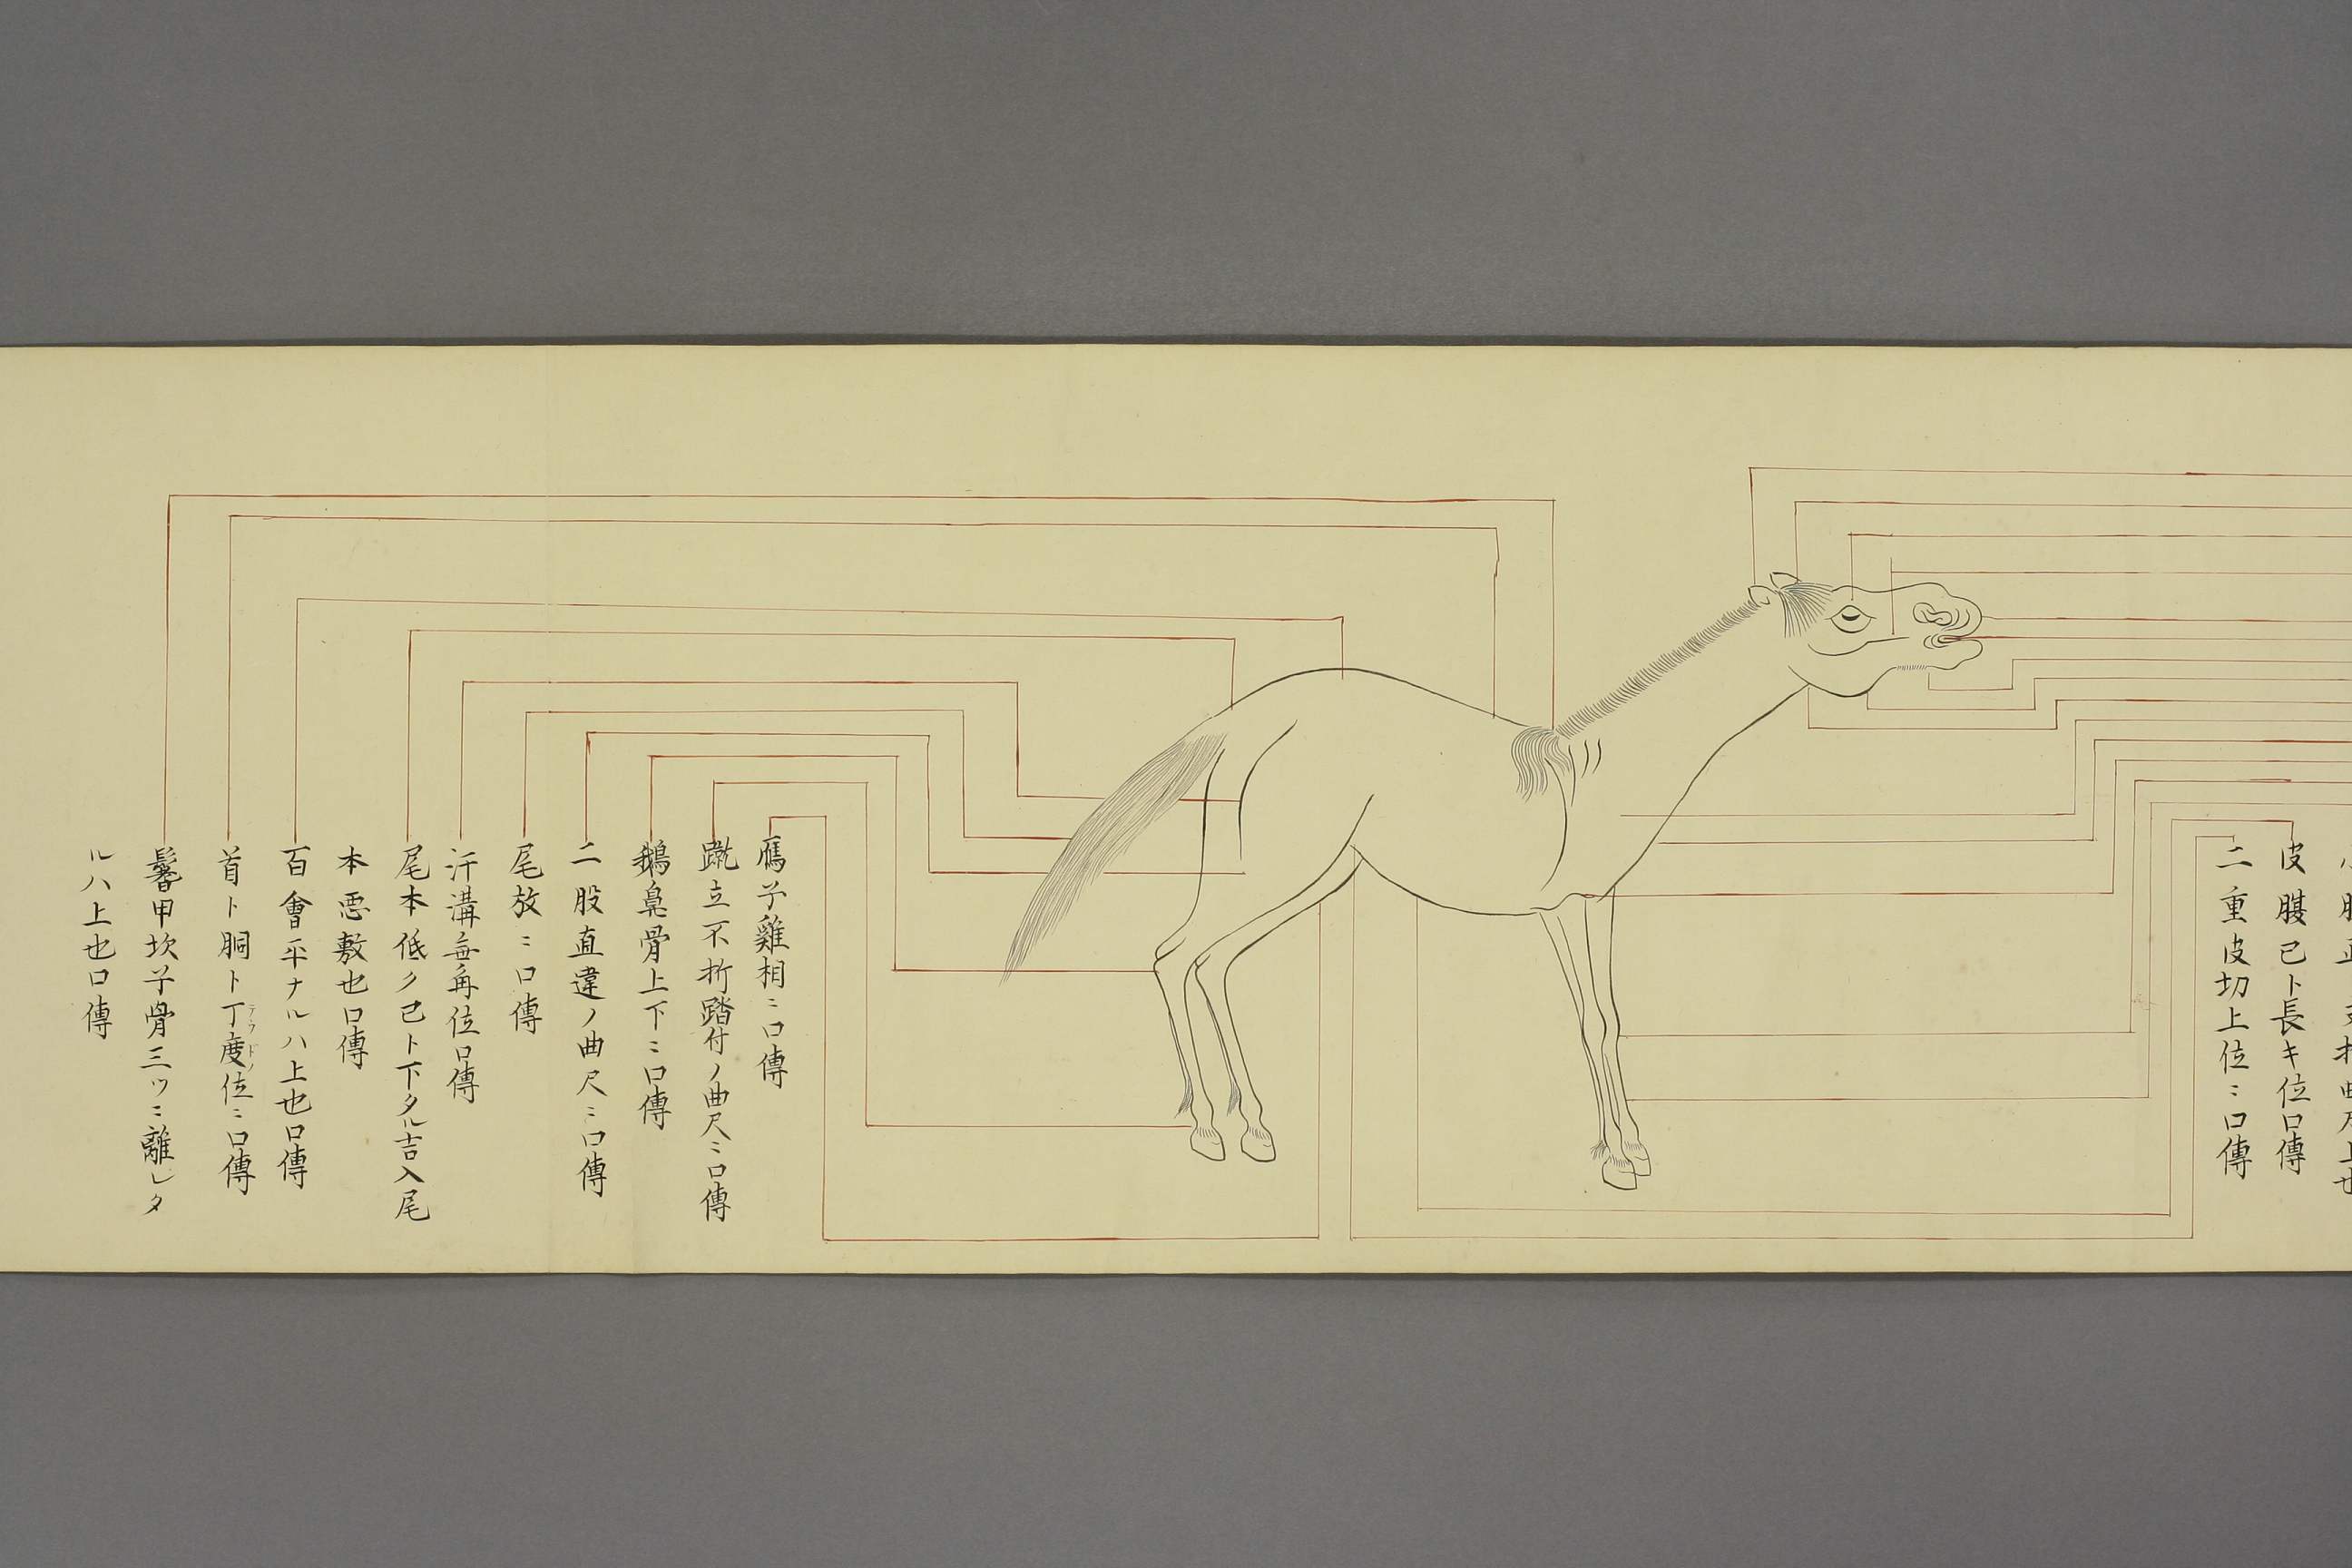 皮腰已ト長キ位口傳
二重皮切上位ニ口傳
鴈子雞相ニ口傳
蹴立不折踏付ノ曲尺ニ口傳
鵝鼻骨上下ニ口傳
二股直違ノ曲尺ニ口傳
尾放ニ口傳
汗溝每角位口傳
尾本低ク已ト下タル吉入尾
本悪敷也口傳
百會平ナルハ上也口傳
首ト胴ト丁度位ニ口傳
テウドノ
鬐甲坎子骨三ツニ離レタ
ルハ上也口傳